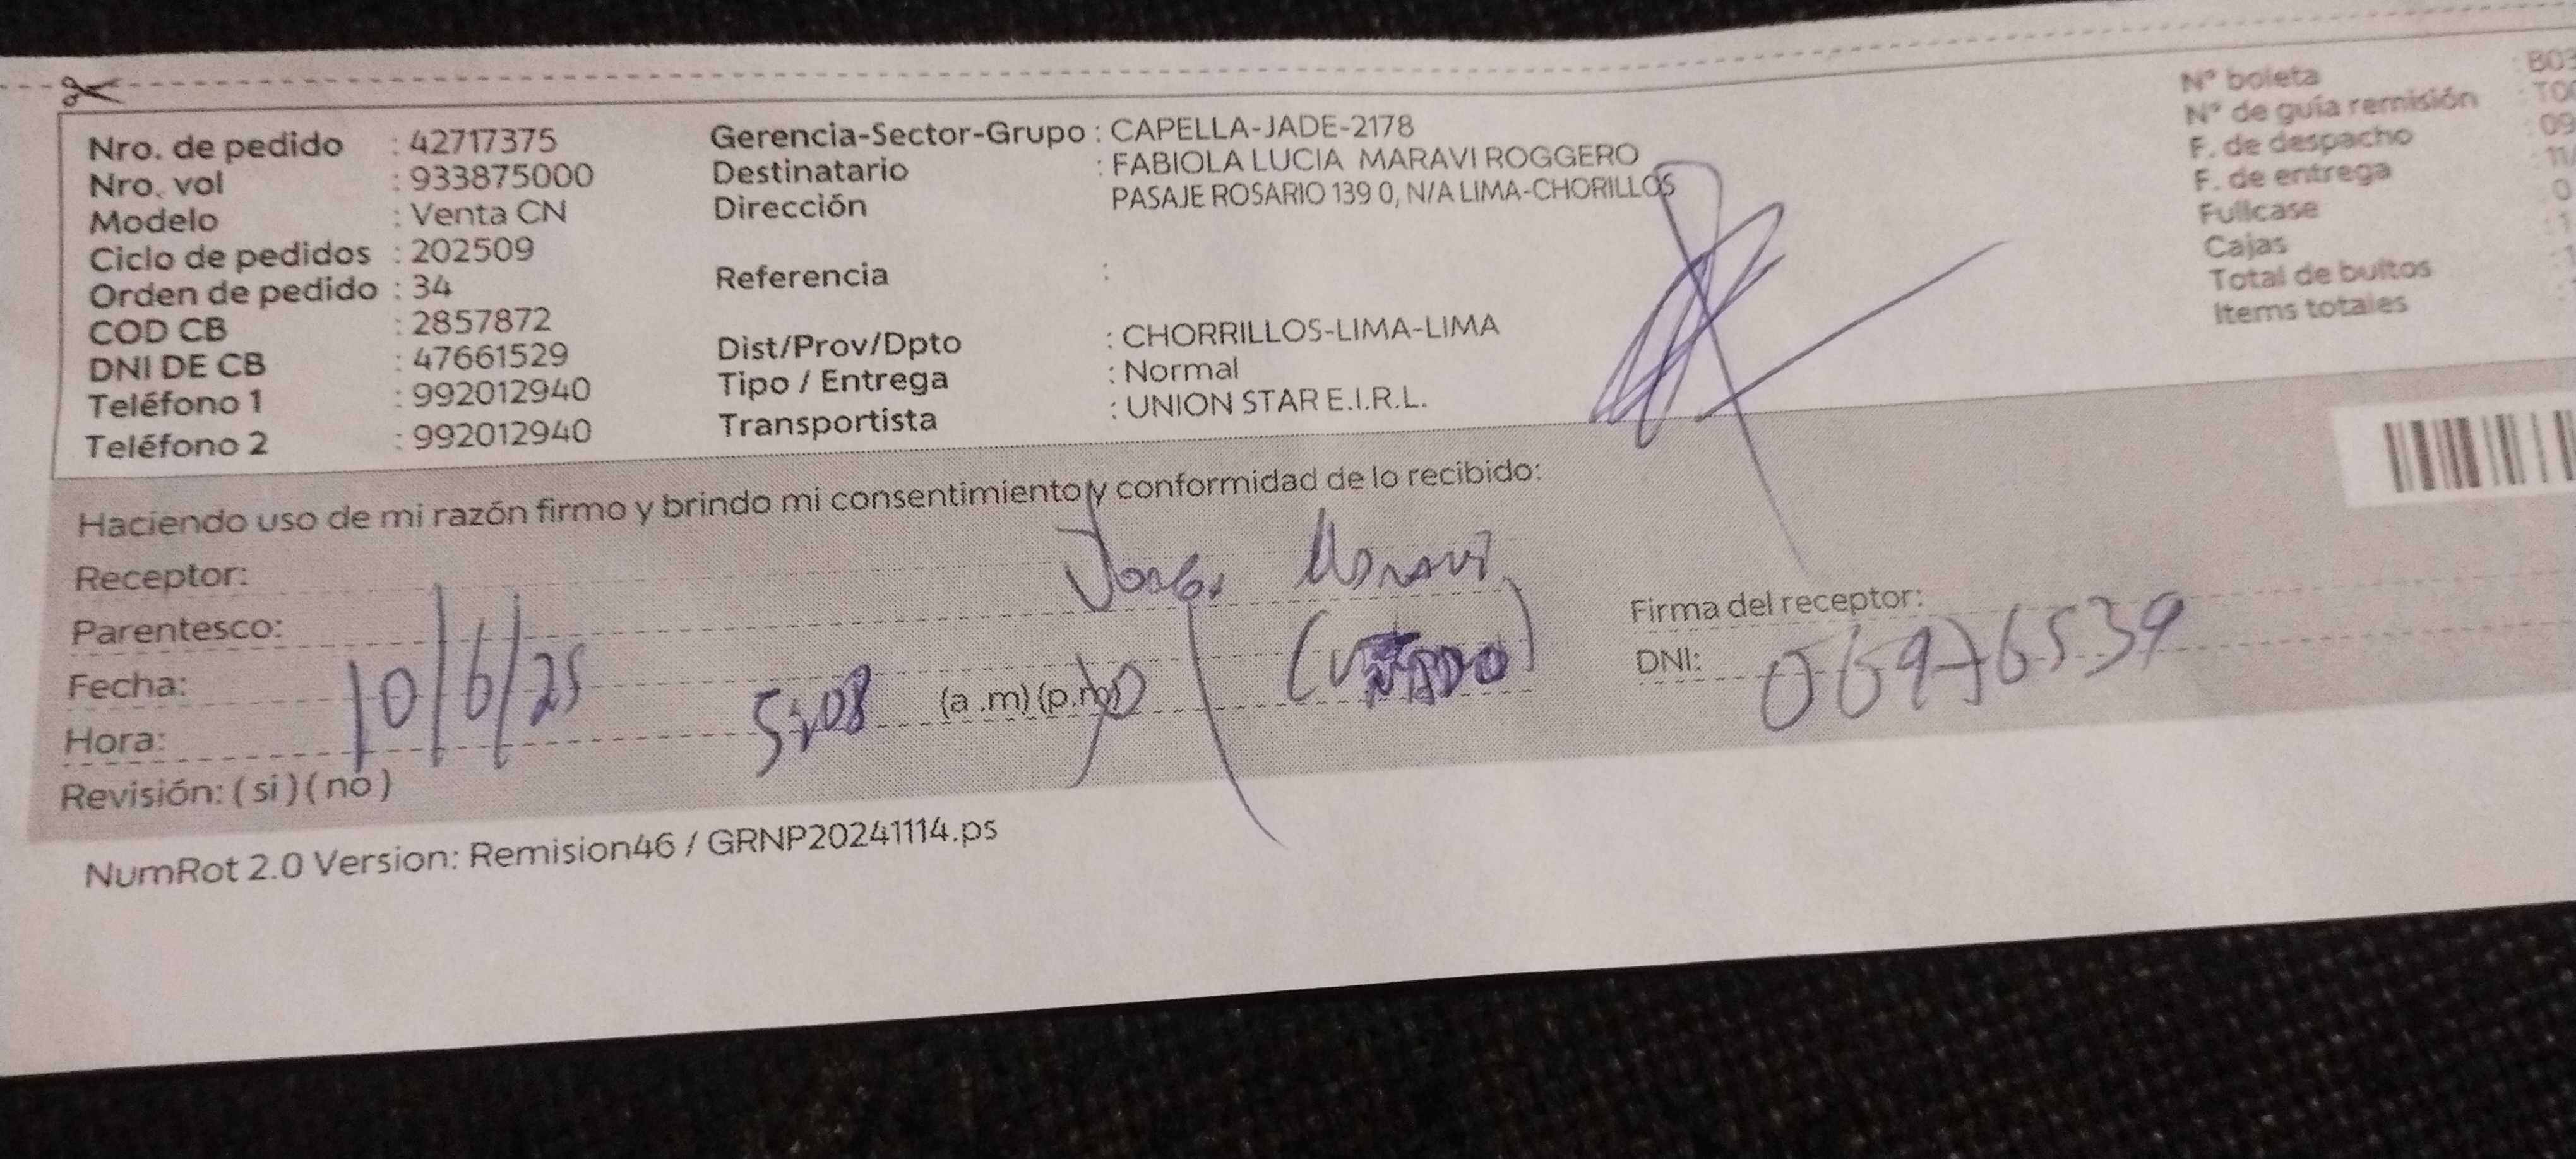 Nro. de pedido : 42717375
Nro. vol : 933875000
Modelo : Venta CN
Ciclo de pedidos : 202509
Orden de pedido : 34
COD CB : 2857872
DNI DE CB : 47661529
Teléfono 1 : 992012940
Teléfono 2 : 992012940
Gerencia-Sector-Grupo : CAPELLA-JADE-2178
Destinatario : FABIOLA LUCIA MARAVI ROGGERO
Dirección PASAJE ROSARIO 139 0, N/A LIMA-CHORILLOS
Referencia :
Dist/Prov/Dpto : CHORRILLOS-LIMA-LIMA
Tipo / Entrega : Normal
Transportista : UNION STAR E.I.R.L.
N° boleta : B03
N° de guía remisión : T00
F. de despacho : 09
F. de entrega : 11/
Fullcase : 0
Cajas : 1
Total de bultos : 1
Items totales
Haciendo uso de mi razón firmo y brindo mi consentimiento y conformidad de lo recibido:
Receptor: Maravi
Parentesco:
Fecha: 10/6/25
Hora: (a .m) (p.m)
Revisión: ( si ) ( no )
Firma del receptor:
DNI: 06976539
NumRot 2.0 Version: Remision46 / GRNP20241114.ps